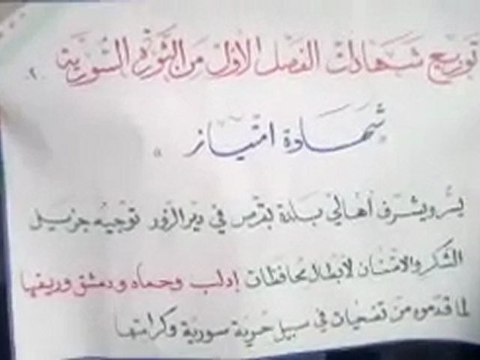 توزيع شهادات الفصل الأول من الثورة السورية
شهادة امتياز
يسر ويشرف أهالي بلدة بقرص في دير الزور توجيه جزيل
الشكر والامتنان لأبطال محافظات إدلب وحماه ودمشق وريفها
لما قدموه من تضحيات في سبيل حرية سورية وكرامتها